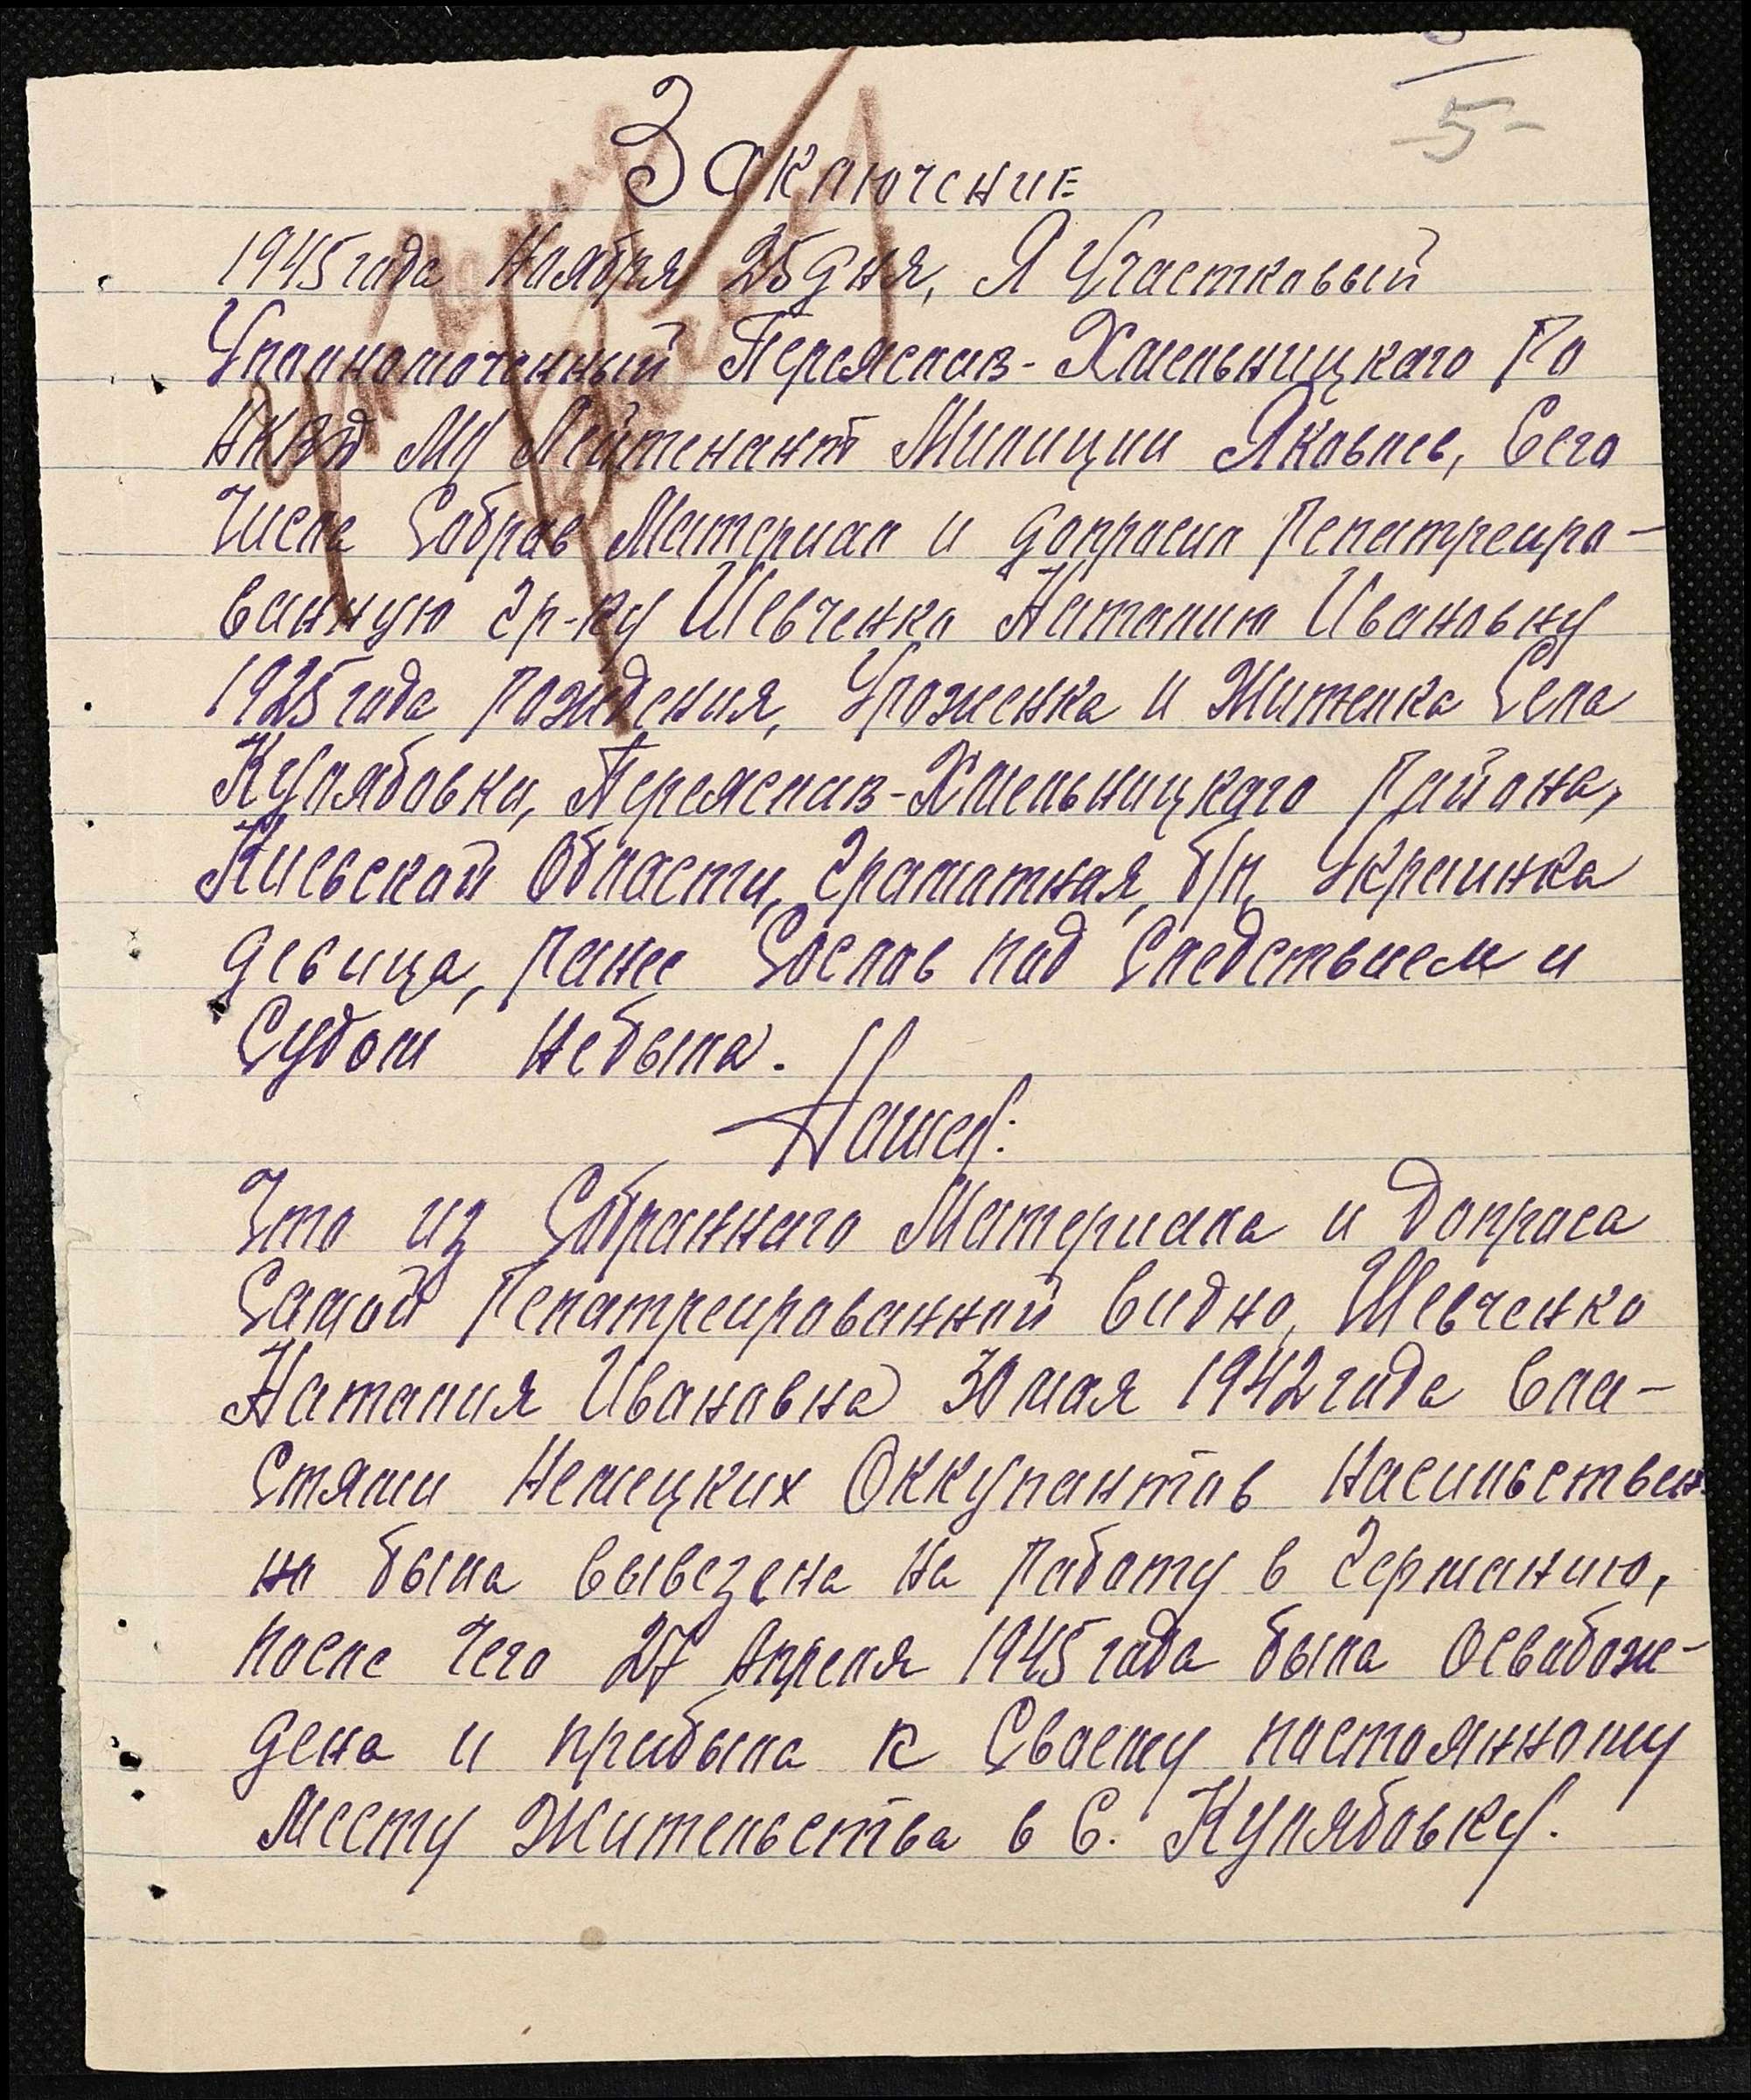 -5-
Заключение
1945 года Ноября 25 дня, Я Участковый
Уполномоченный Переяслав-Хмельницкаго Ро
НКВД Мл Лейтенант Милиции Яковлев, Сего
Числа Собрав Материал и допросил Репатреиро-
ванную гр-ку Шевченко Наталию Ивановну
1925 года рождения, Уроженка и Жителка Села
Кулябовки, Переяслав-Хмельницкаго Района,
Киевской Области, грамотная, б/п, Украинка
девица, Ранее Сослов под Следствием и
Судом Небыла.
Нашел:
Что из Собраннаго Материала и допроса
Самой Репатреированной видно, Шевченко
Наталия Ивановна 30 мая 1942 года Вла-
Стями Немецких Оккупантов Насильствен
но была вывезена на Работу в Германию,
после Чего 27 Апреля 1945 года была Освабож-
дена и прибыла к Своему постоянному
Месту Жительства в С. Кулябовку.